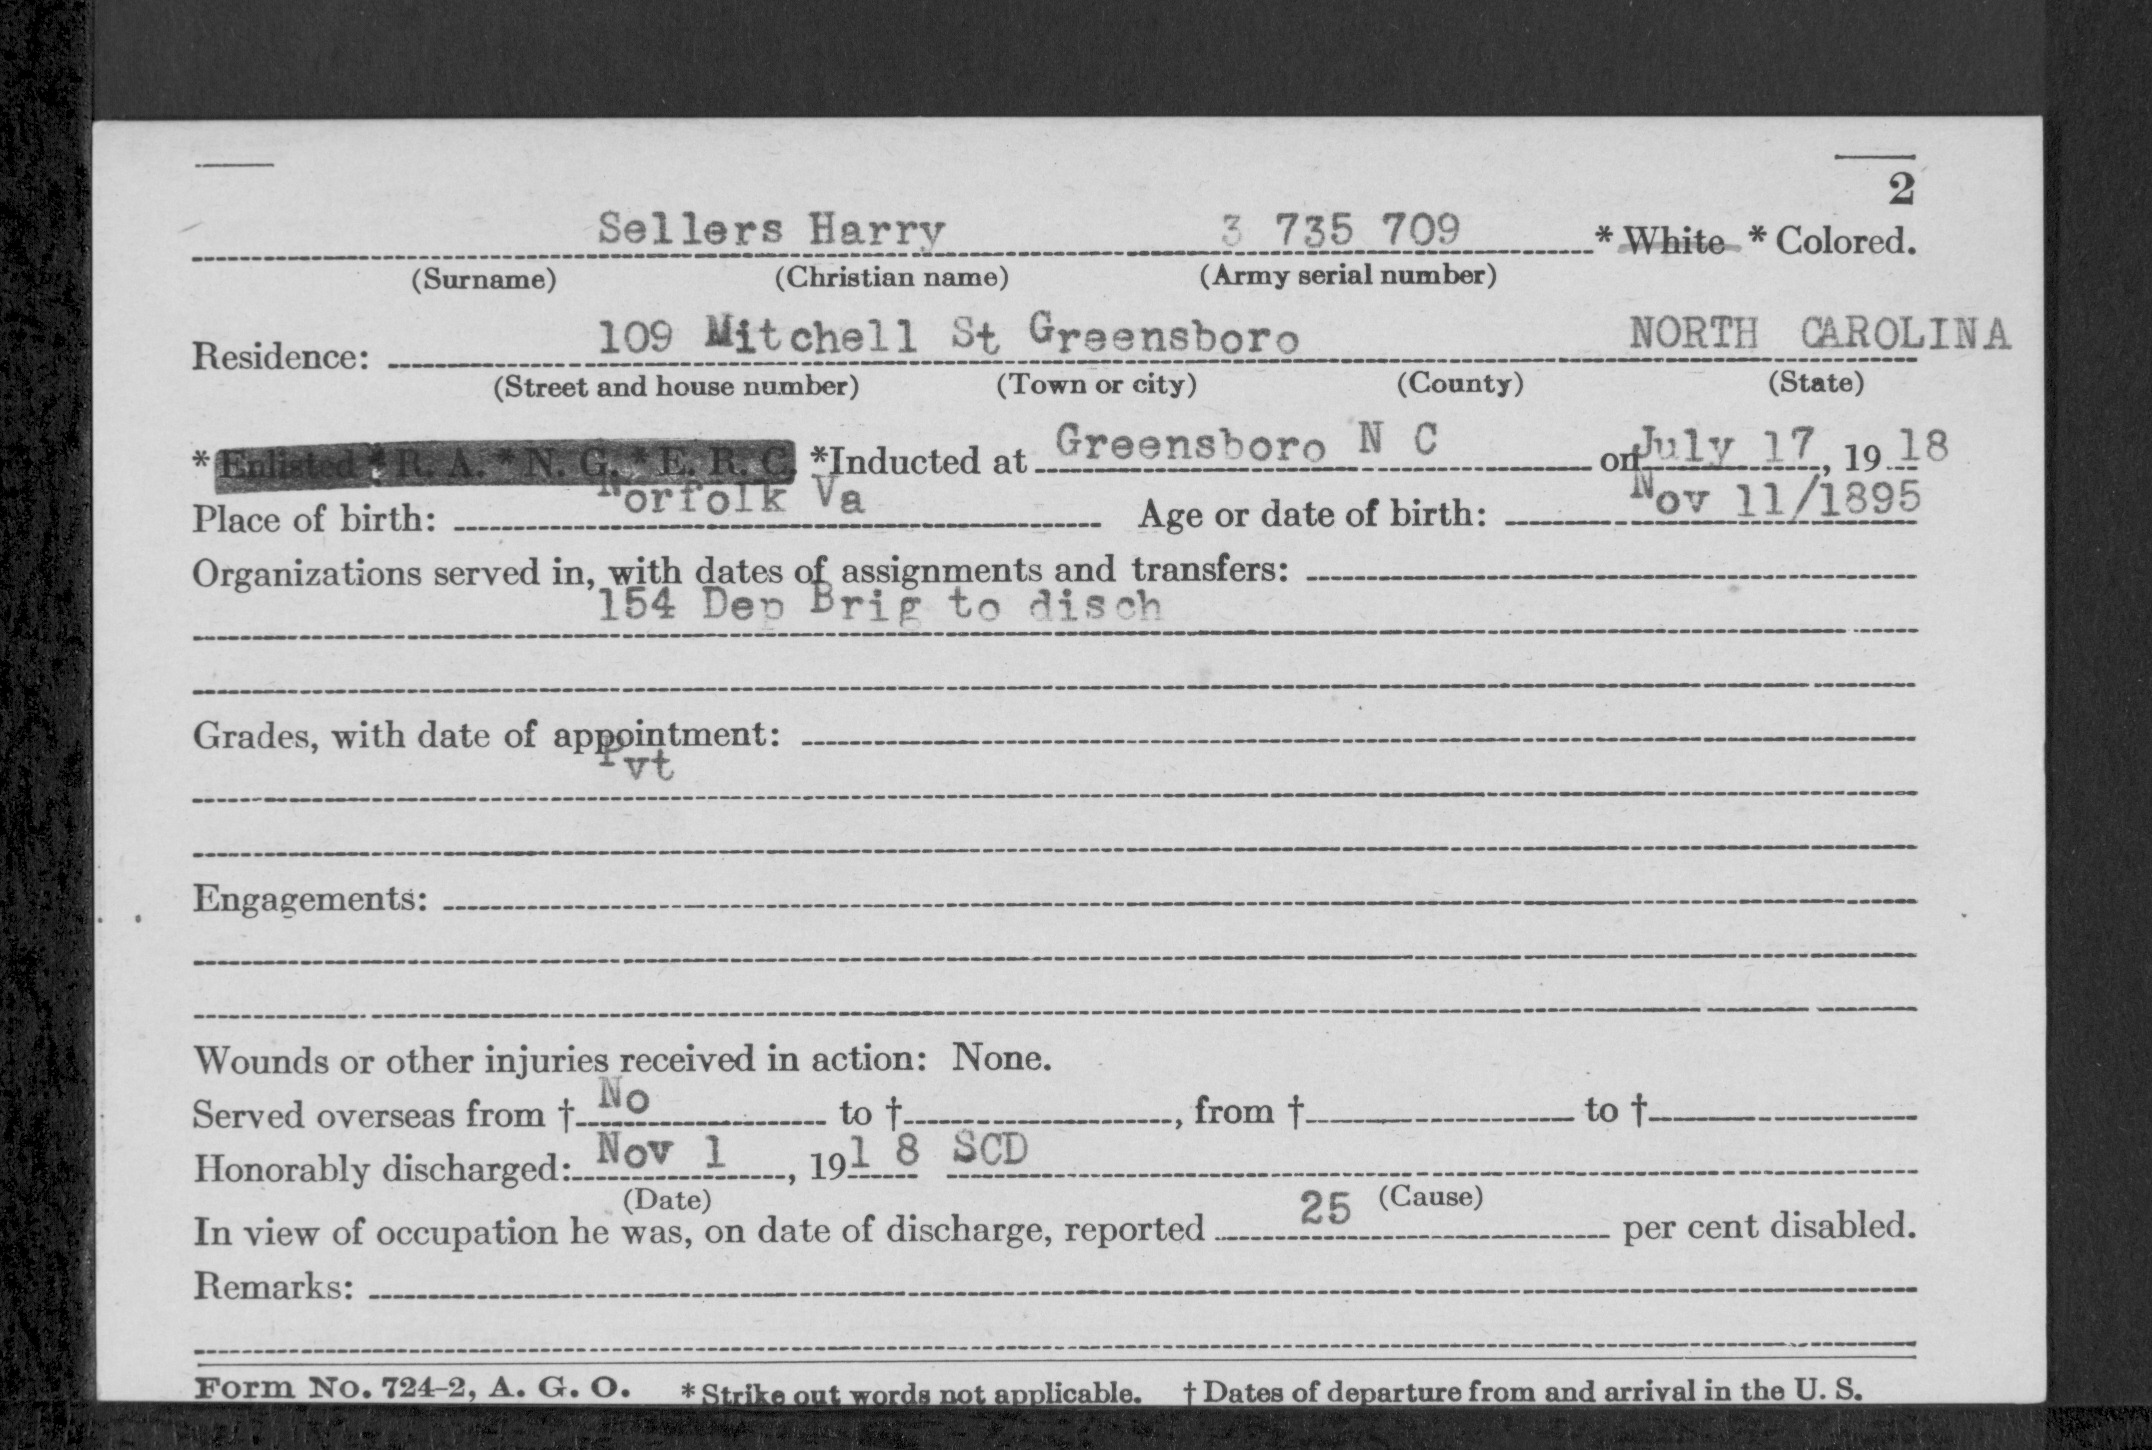 2
Sellers Harry 3 735 709 * White * Colored.
(Surname) (Christian name) (Army serial number)
Residence: 109 Mitchell St Greensboro NORTH CAROLINA
(Street and house number) (Town or city) (County) (State)
* Enlisted * R. A. * N. G. * E. R. C. *Inducted at Greensboro N C on July 17, 1918
Place of birth: Norfolk Va Age or date of birth: Nov 11/1895
Organizations served in, with dates of assignments and transfers:
154 Dep Brig to disch
Grades, with date of appointment:
Pvt
Engagements:
Wounds or other injuries received in action: None.
Served overseas from † No to †, from † to †
Honorably discharged: Nov 1, 191 8 SCD
(Date) (Cause)
In view of occupation he was, on date of discharge, reported 25 per cent disabled.
Remarks:
Form No. 724-2, A. G. O. * Strike out words not applicable. † Dates of departure from and arrival in the U. S.